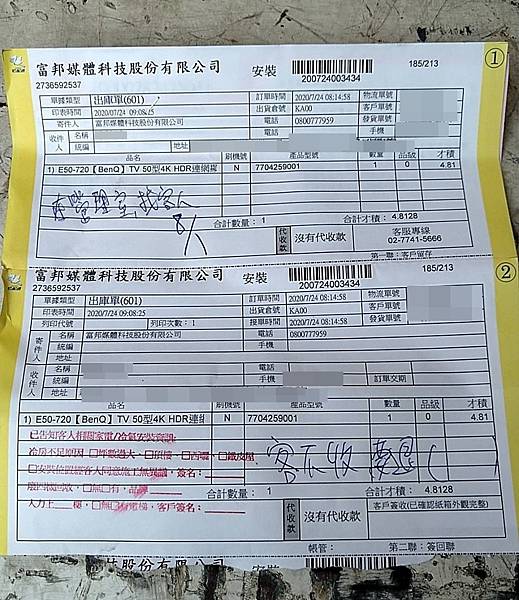 富邦媒體科技股份有限公司 安裝 200724003434 185/213 ①
2736592537
單據類型 出庫單(601) 訂單時間 2020/7/24 08:14:58 物流單號
印表時間 2020/07/24 09:08:25 出貨倉號 KA00 客戶單號
寄件人 富邦媒體科技股份有限公司 電話 0800777959 發貨單號
收件人 名稱 電話 手機
統編 地址
品名 刷機號 產品型號 數量 品級 才積
1) E50-720【BenQ】TV 50型4K HDR連網 N 7704259001 1 4.81
合計數量： 1 合計才積： 4.8128
代收款 沒有代收款 客服專線
02-7741-5666
第一聯：客戶留存
富邦媒體科技股份有限公司 安裝 200724003434 185/213 ②
2736592537
單據類型 出庫單(601) 訂單時間 2020/7/24 08:14:58 物流單號
印表時間 2020/7/24 09:08:25 出貨倉號 KA00 客戶單號
列印代號 列印次數： 1 接單時間 2020/7/24 08:14:58 發貨單號
寄件人 名稱 富邦媒體科技股份有限公司 電話 0800777959
統編 手機
地址
收件人 名稱 電話
統編 手機 訂單交期
地址
品名 刷機號 產品型號 數量 品級 才積
1) E50-720【BenQ】TV 50型4K HDR連網 N 7704259001 1 4.81
已告知客人相關家電/冷氣安裝資訊
冷房不足原因 □坪數過大、□頂樓、□西曬、□鐵皮屋
客不收
簽名：
合計數量： 1 合計才積： 4.8128
客戶簽名：
代收款 沒有代收款 客戶簽收(已確認紙箱外觀完整)
帳管： 第二聯：簽回聯